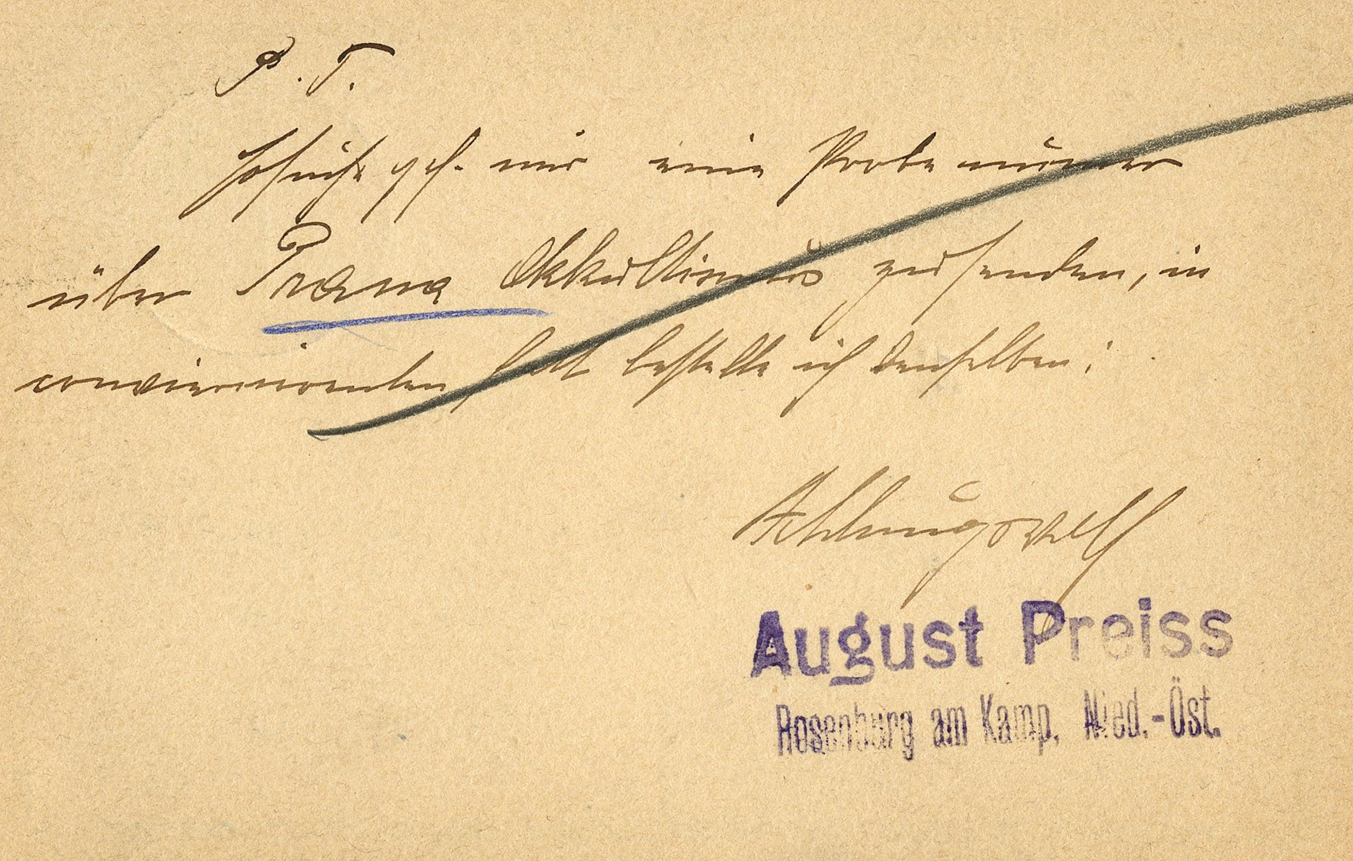 P. T.
Ersuche gefl. mir eine Probenummer
über Prana Okkultismus zusenden, in
convenierenden Fall bestelle ich denselben!
Achtungsvoll
August Preiss
Rosenburg am Kamp, Nied.-Öst.